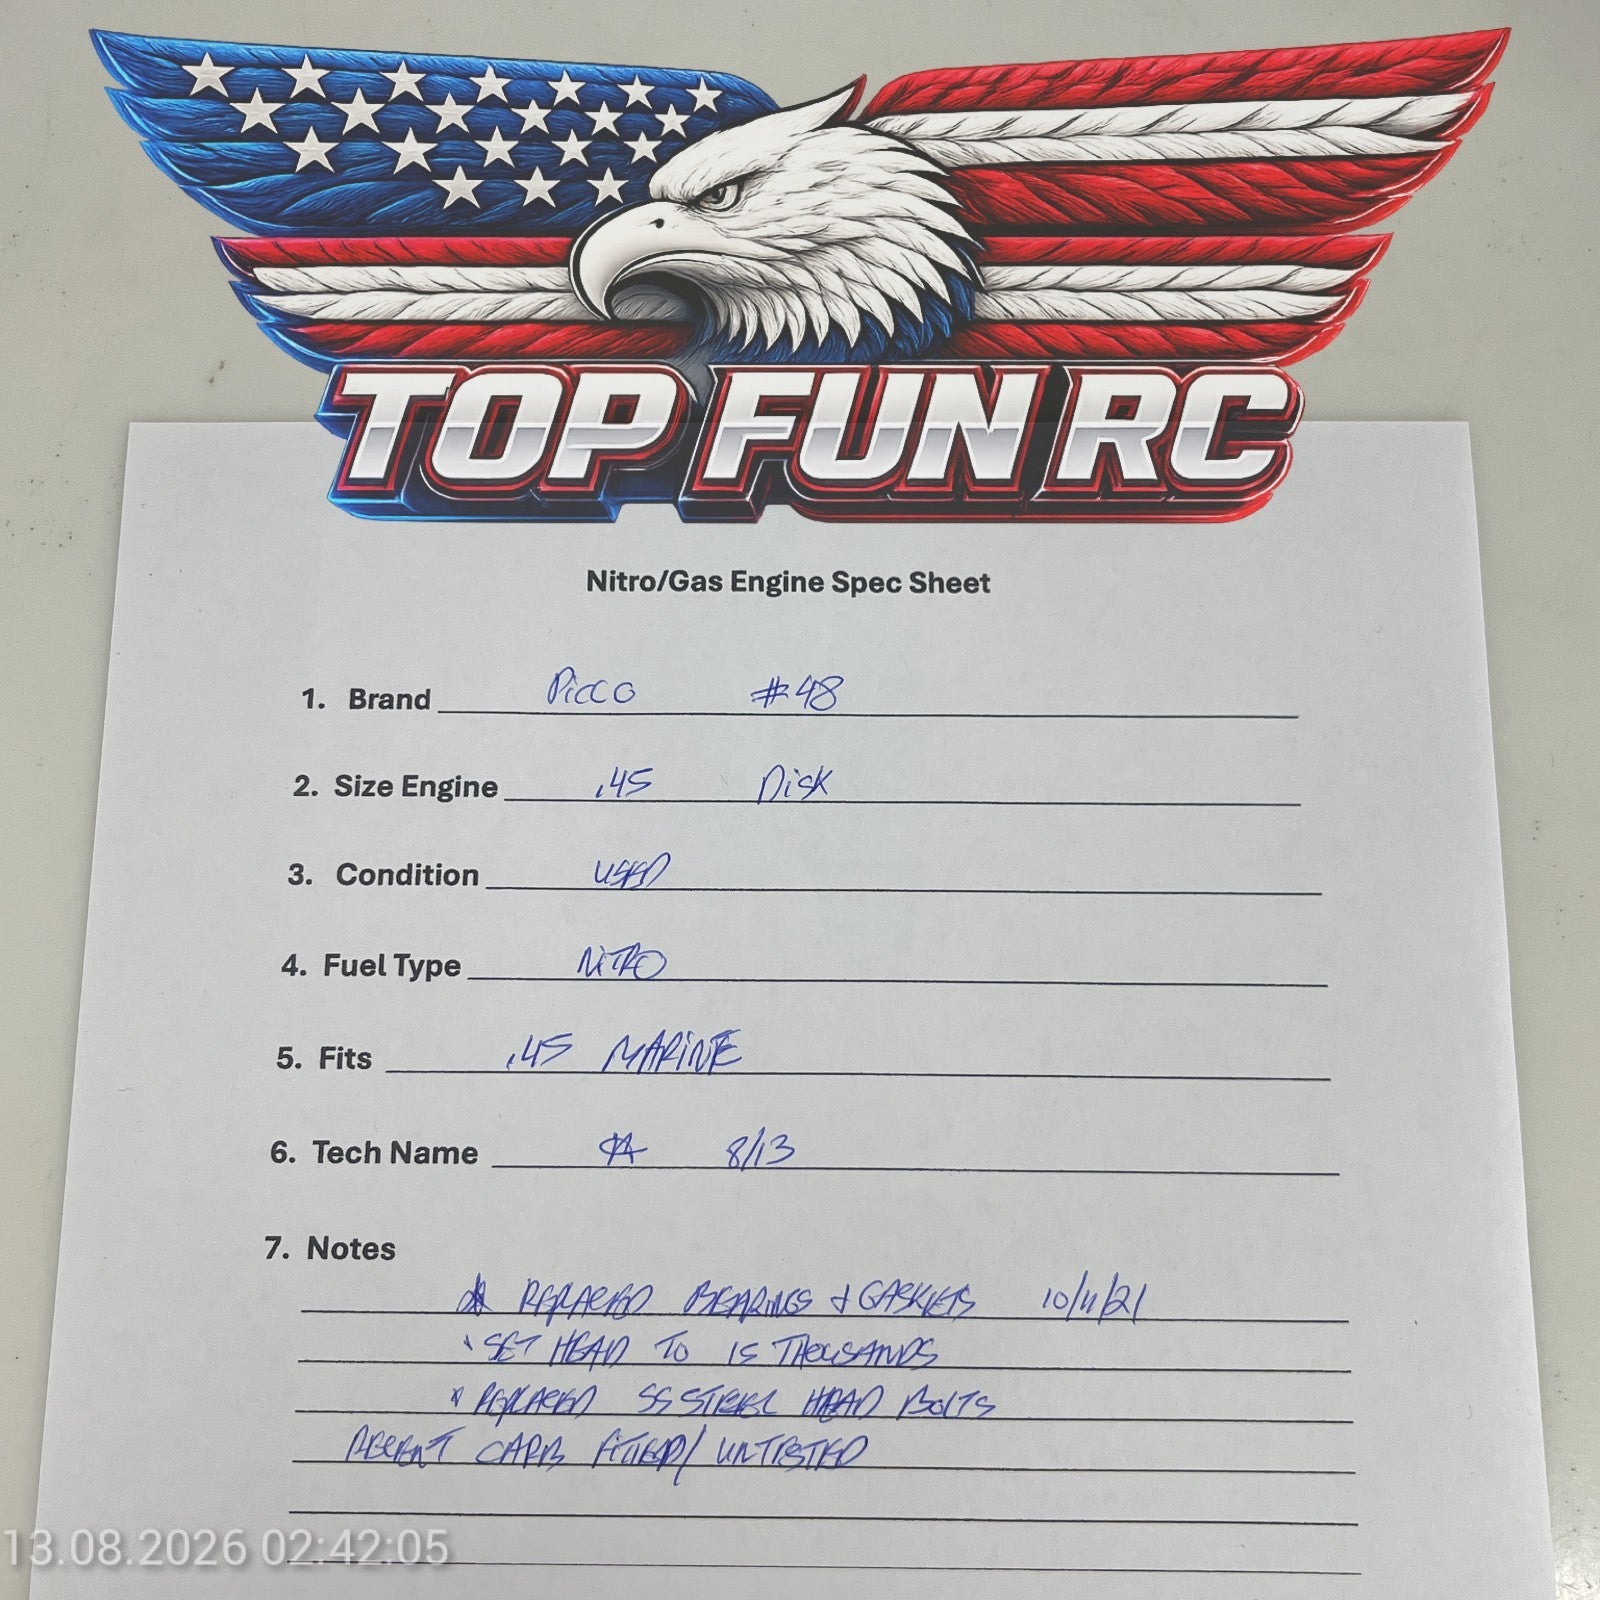 TOP FUN RC
Nitro/Gas Engine Spec Sheet
1. Brand Picco #48
2. Size Engine .45 Disk
3. Condition USED
4. Fuel Type NITRO
5. Fits .45 MARINE
6. Tech Name 8/13
7. Notes
REPLACED BEARINGS & GASKETS 10/11/21
SET HEAD TO 15 THOUSANDS
REPLACED SS STEEL HEAD BOLTS
RECENT CARB FITTED/ UNTESTED
13.08.2026 02:42:05